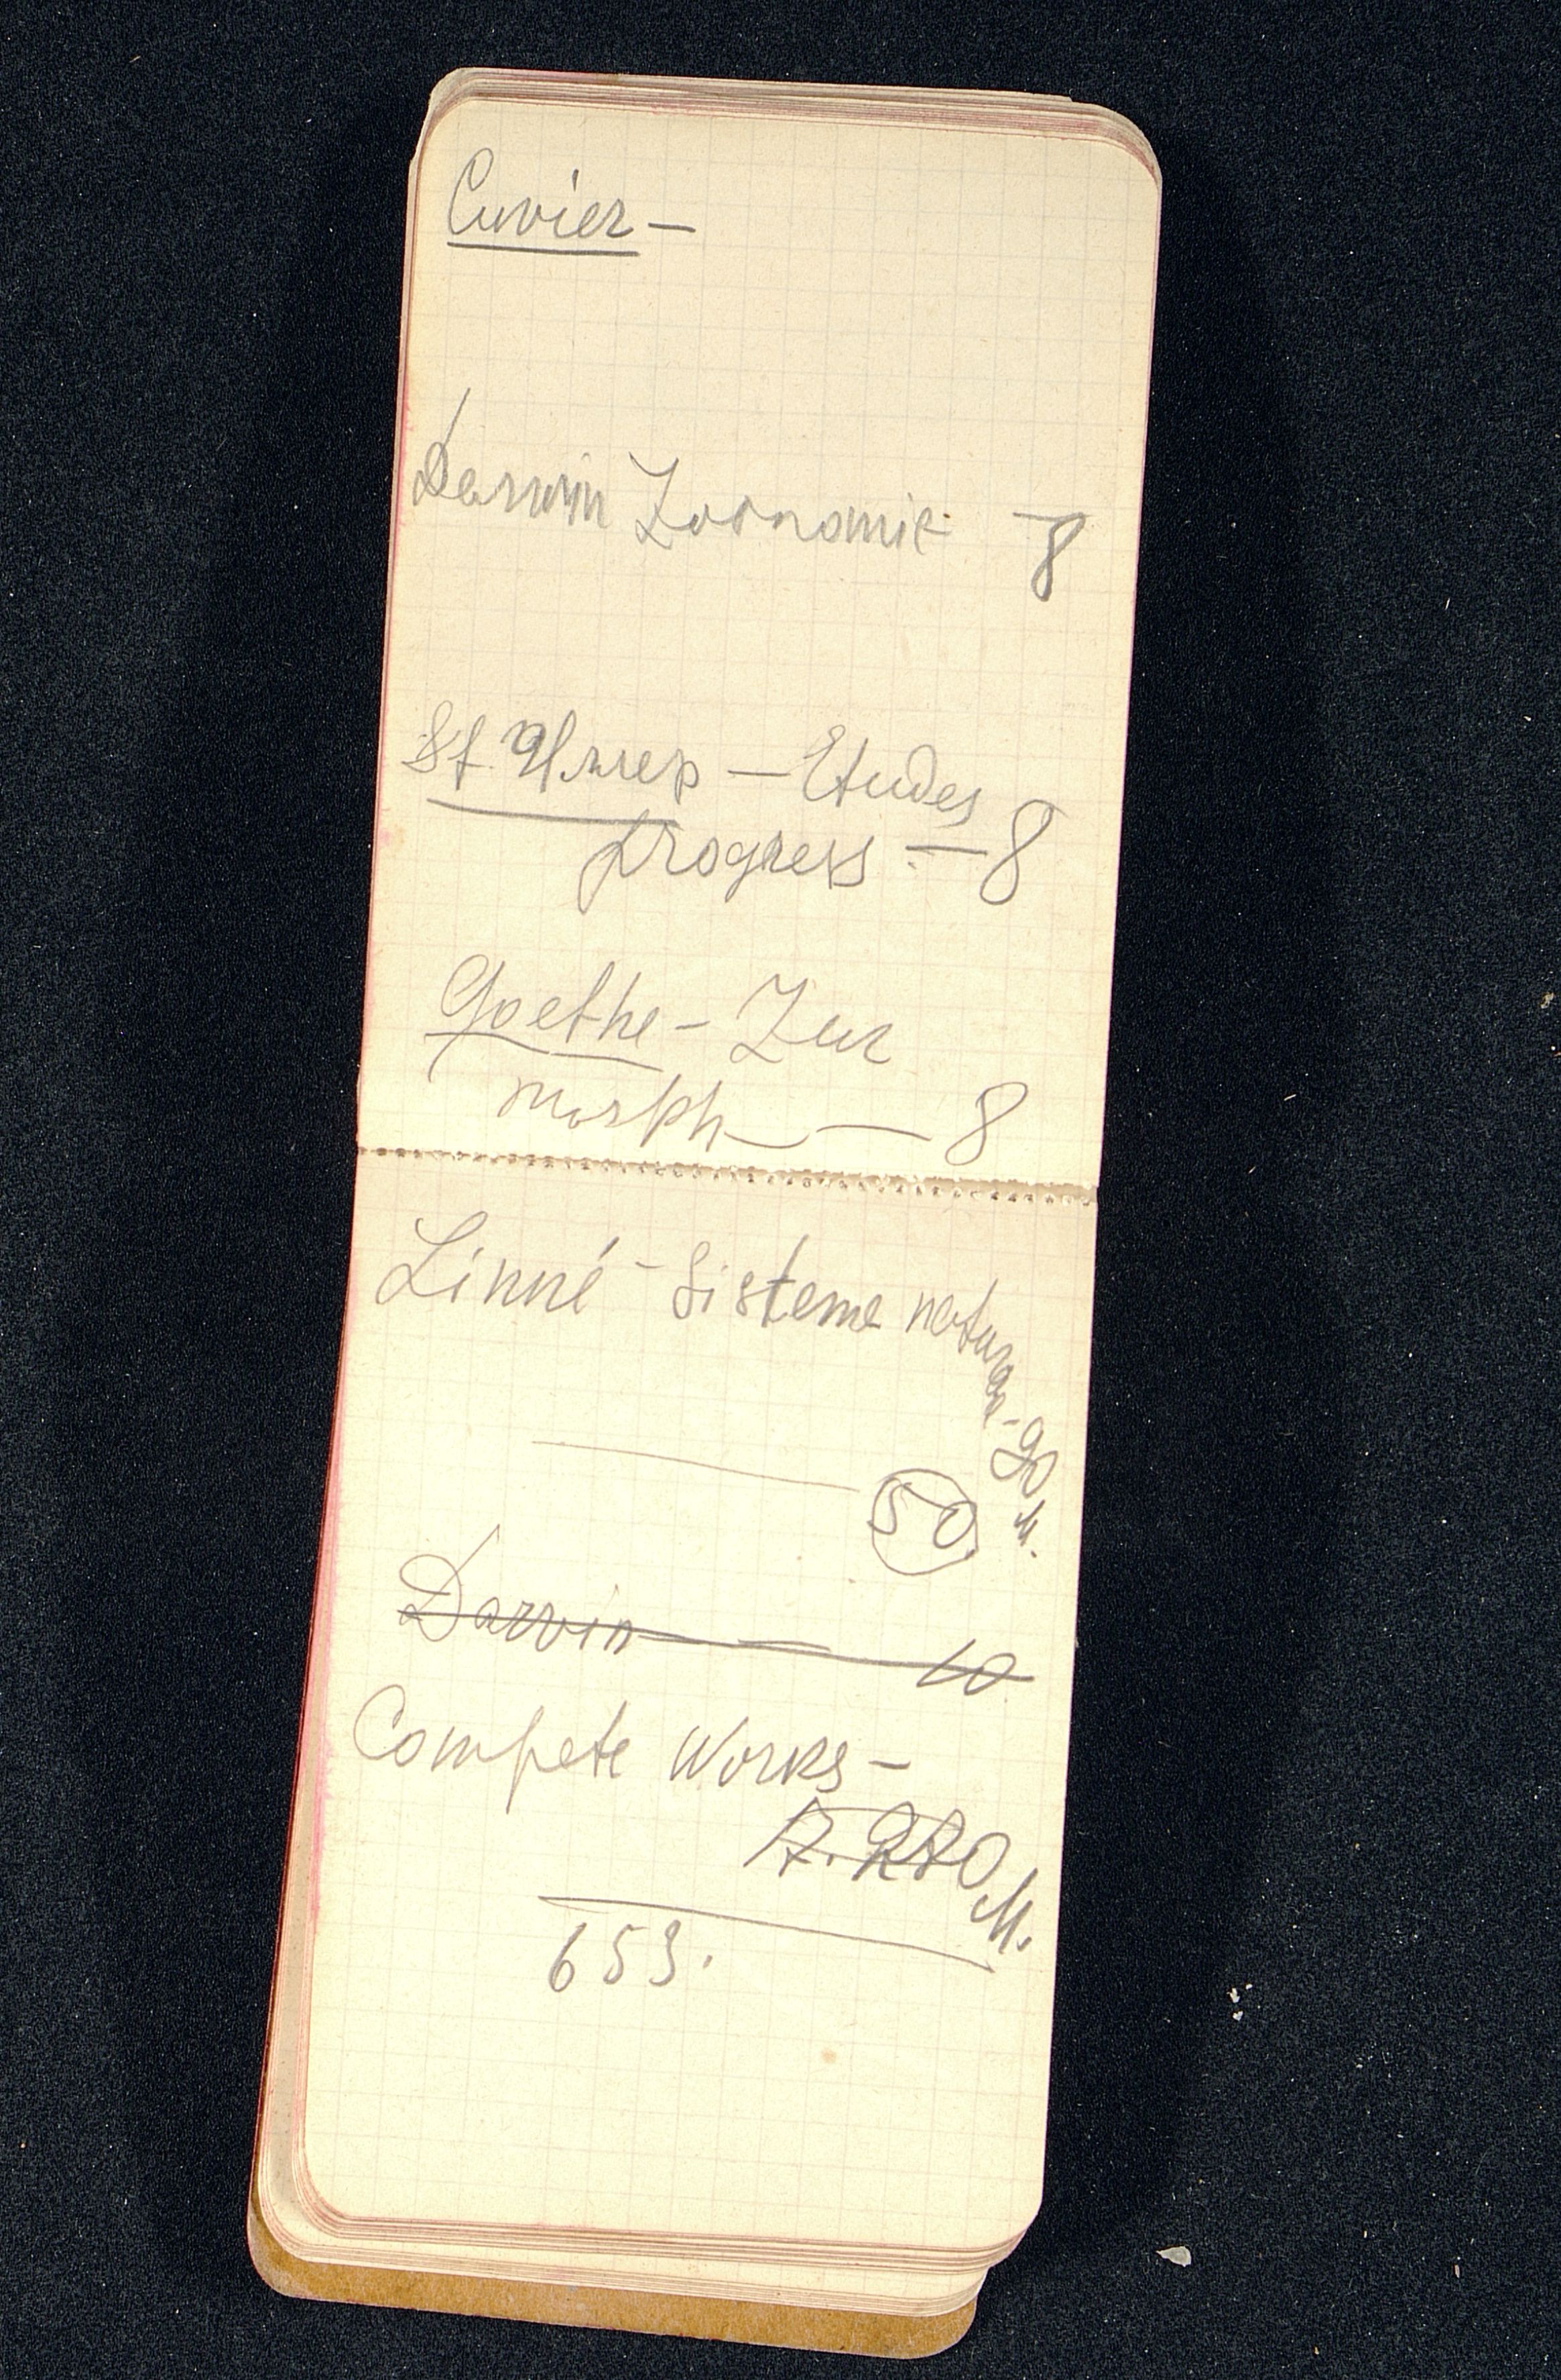 Cuvier —
Darwin Zoonomie — 8
St. — Etudes
progress — 8
Goethe — Zur
morph — 8
Linné - Sisteme naturae - 90 M.
50
Darwin — 10
Compete Works —
M.
653.